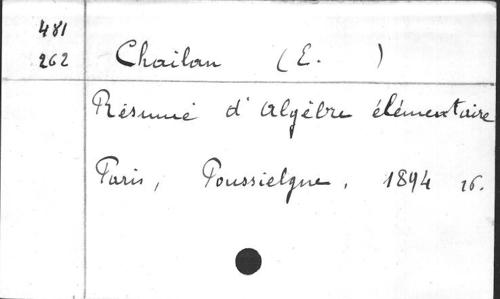 481
262
Chailan (E. )
Résumé d'Algèbre élémentaire
Paris, Poussielgue, 1894 16.